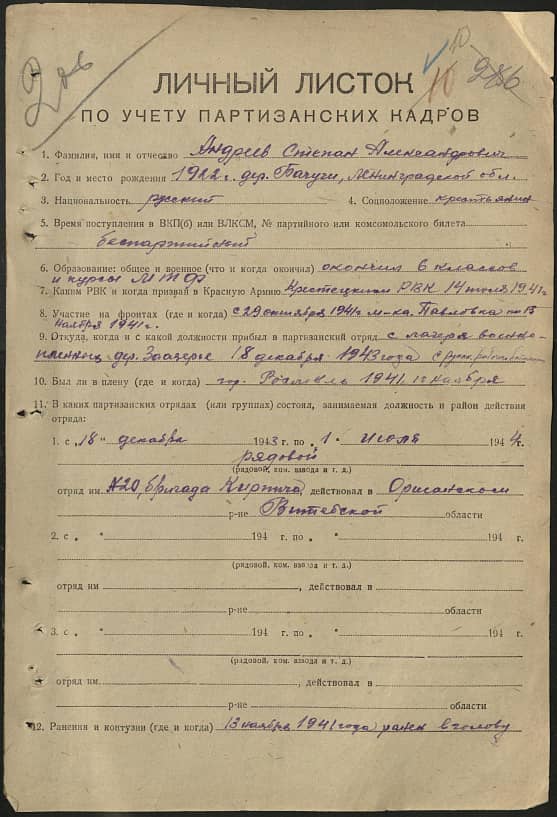 10
10 286
ЛИЧНЫЙ ЛИСТОК
ПО УЧЕТУ ПАРТИЗАНСКИХ КАДРОВ
1. Фамилия, имя и отчество Андреев Степан Александрович
2. Год и место рождения 1922 г. дер. Ленинградской обл.
3. Национальность русский 4. Соцположение крестьянин
5. Время поступления в ВКП(б) или ВЛКСМ, № партийного или комсомольского билета
беспартийный
6. Образование: общее и военное (что и когда окончил) окончил 6 классов
и курсы
7. Каким РВК и когда призван в Красную Армию Крестецким РВК 14 июля 1941 г.
8. Участие на фронтах (где и когда) с 29 октября 1941 Павловка по 13
ноября 1941 г.
9. Откуда, когда и с какой должности прибыл в партизанский отряд с лагеря военно-
пленных дер. Заозерье 18 декабря 1943 года
10. Был ли в плену (где и когда) гор. 1941 ноября
11. В каких партизанских отрядах (или группах) состоял, занимаемая должность и район действия
отряда:
1. с „18" декабря 1943 г. по „1. июль 1944 г.
рядовой
(рядовой, ком. взвода и т. д.)
отряд им. №20, бригада Кирпича, действовал в Оршанском
р-не Витебской области
2. с „ " 194 г. по „ " 194 г.
(рядовой, ком. взвода и т. д.)
отряд им , действовал в
р-не области
3. с „ " 194 г. по „ " 194 г.
(рядовой, ком. взвода и т. д.)
отряд им , действовал в
р-не области
12. Ранения и контузии (где и когда) 13 ноября 1941 года ранен в голову